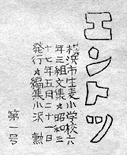 エントツ
横浜市生麦小学校六
年三組文集☆昭和三
十七年五月二十一日
発行☆編集小沢 勲
第一号